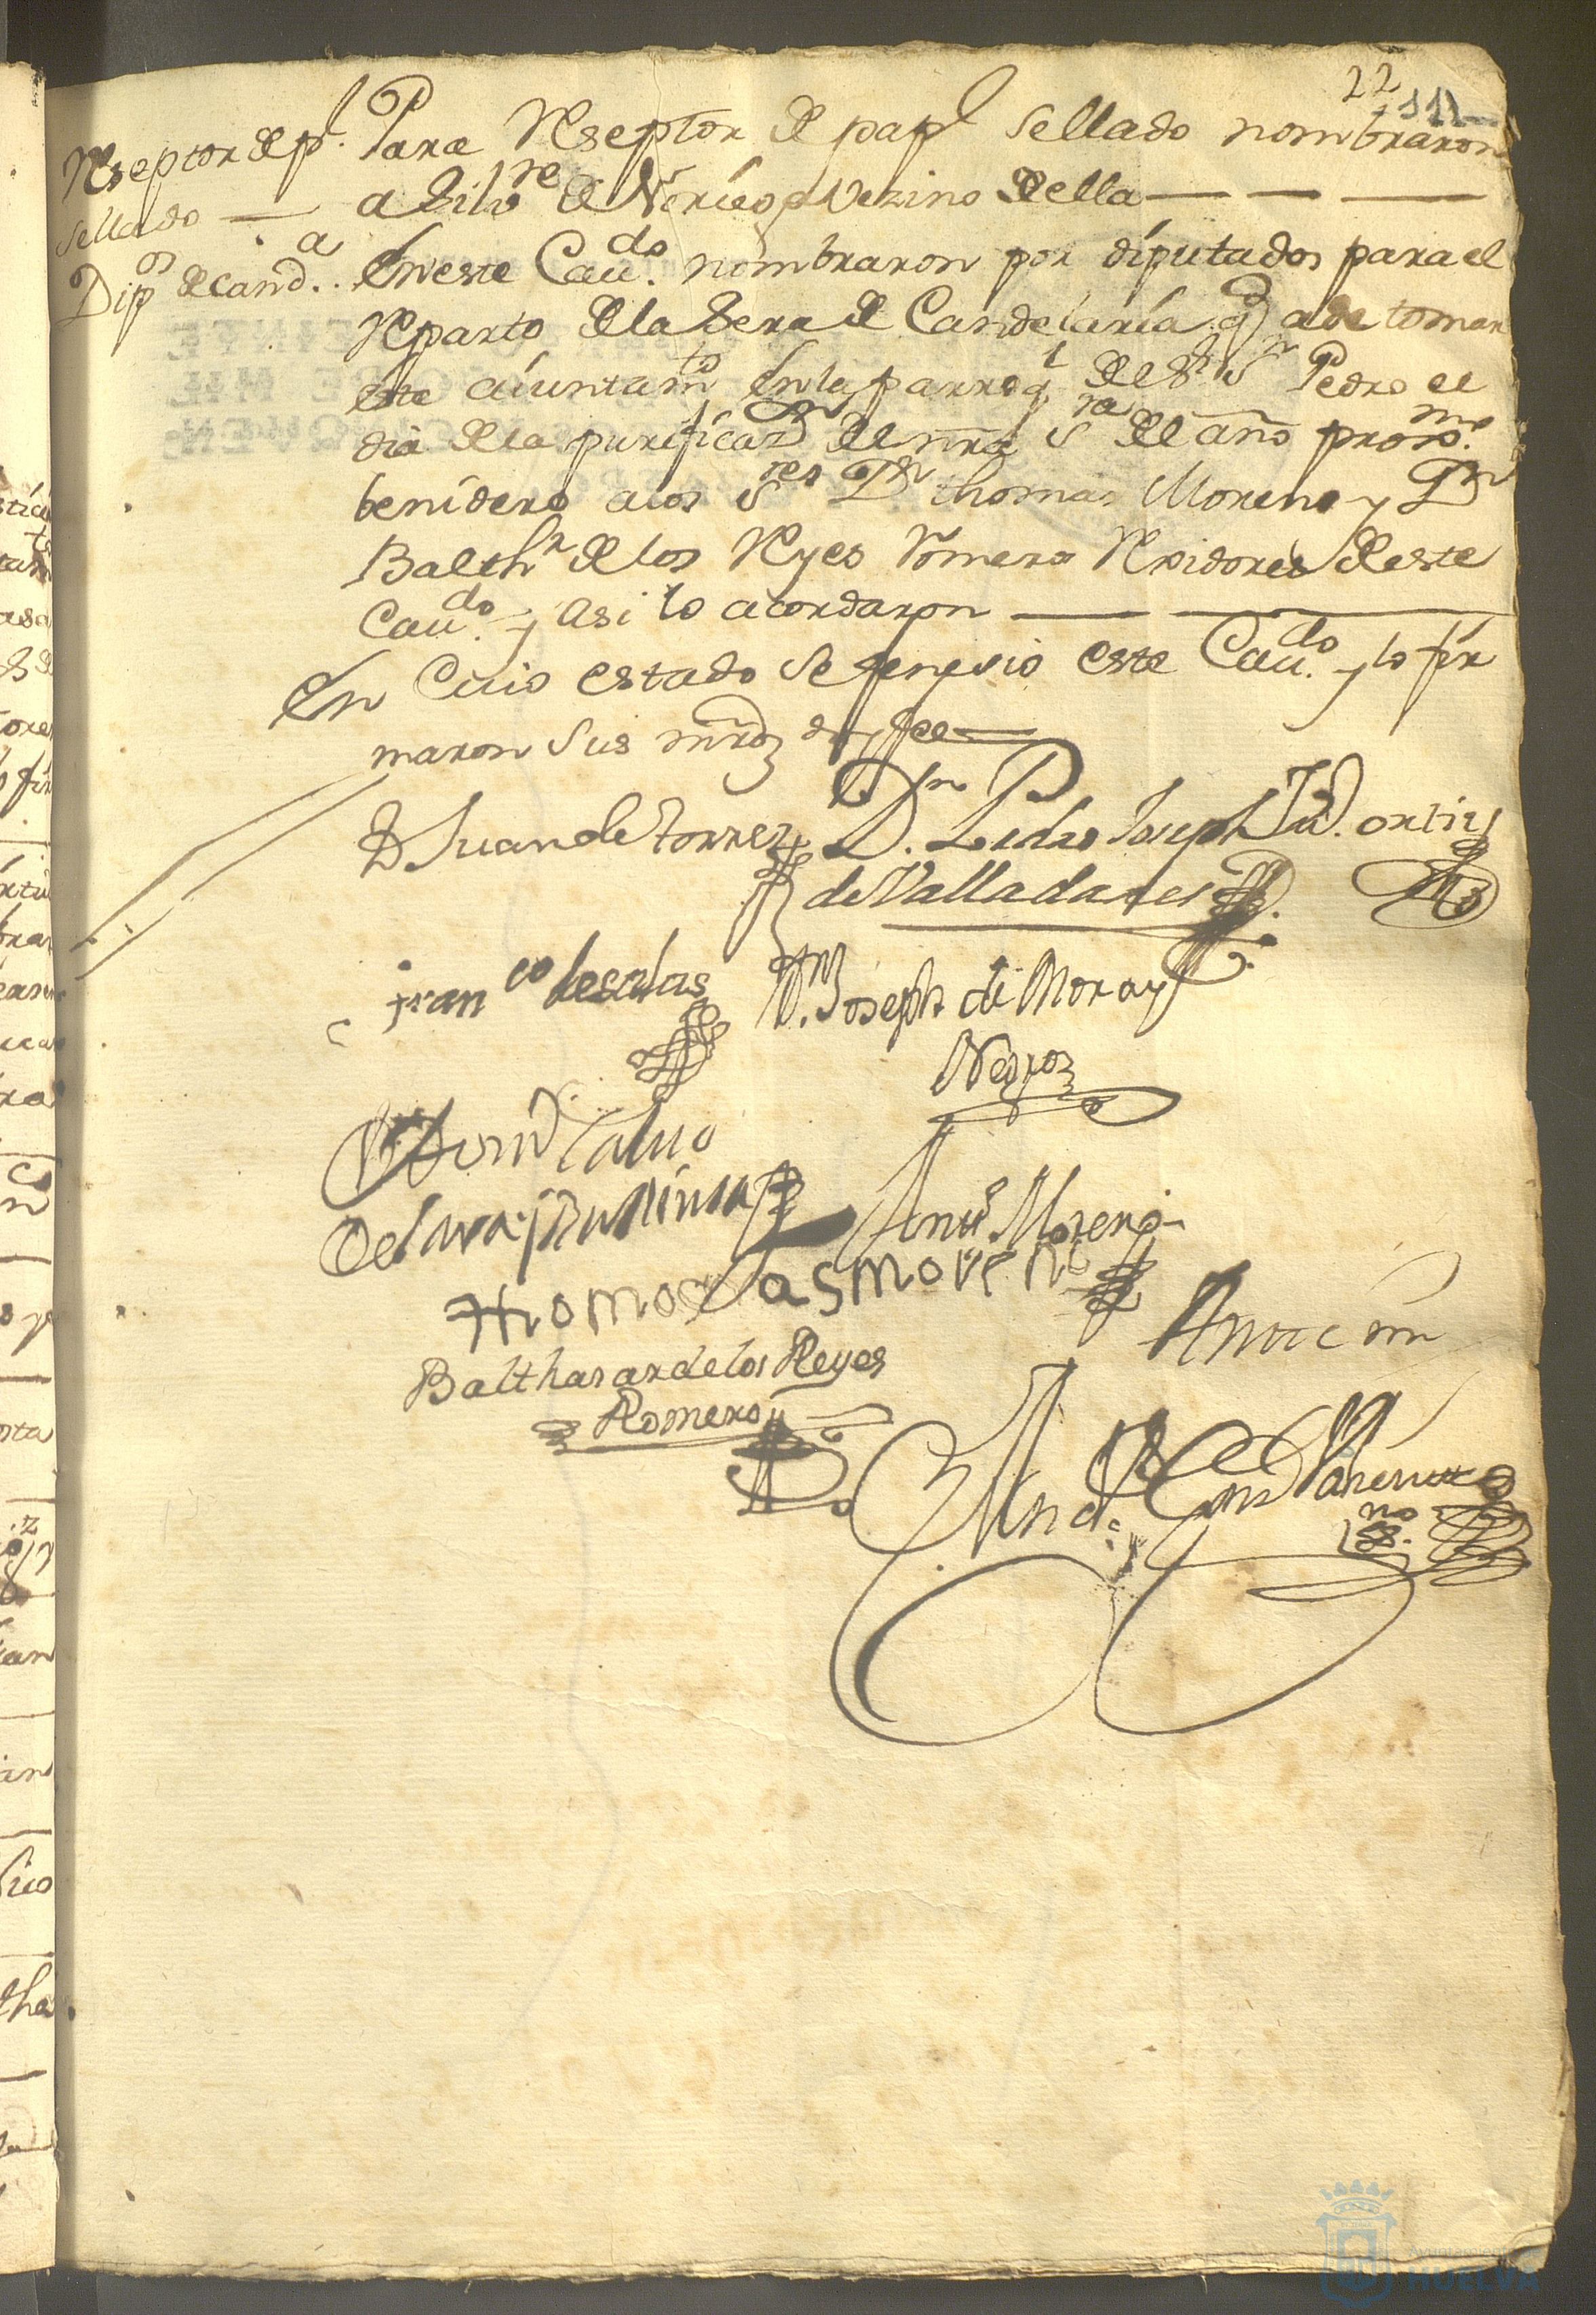 22
111
Reseptor de p.l
sellado —
Para Reseptor de pap.l sellado nombraron
a Silv.re de vezino della — — —
Dip.os de cand.a
En este Cau.do nombraron por diputados para el
Reparto de la Sera de Candelaria q ade tomar
este aiuntam.to En la parroq.l de S.r S.n Pedro el
dia de la purificaz.on de nrã S.ra de el año prox.mo
benidero a los S.res D.n thomas Moreno y D.n
Balth.r de los Reyes Romero Rexidores de este
Cau.do y Asi lo acordaron —
En Cuio estado se fenesio este Cau.do y lo fir
maron sus mrds doy fee —
D Juan de torres
D.n Pedro Joseph
de Valladares
ortiz
fran.co de salas
D.n Joseph de Mora y
Negro
Calvo
Ant.o Moreno
Thomas moreno
Balthasar de los Reyes
Romero
Ante mi
Ayuntamiento
HUELVA